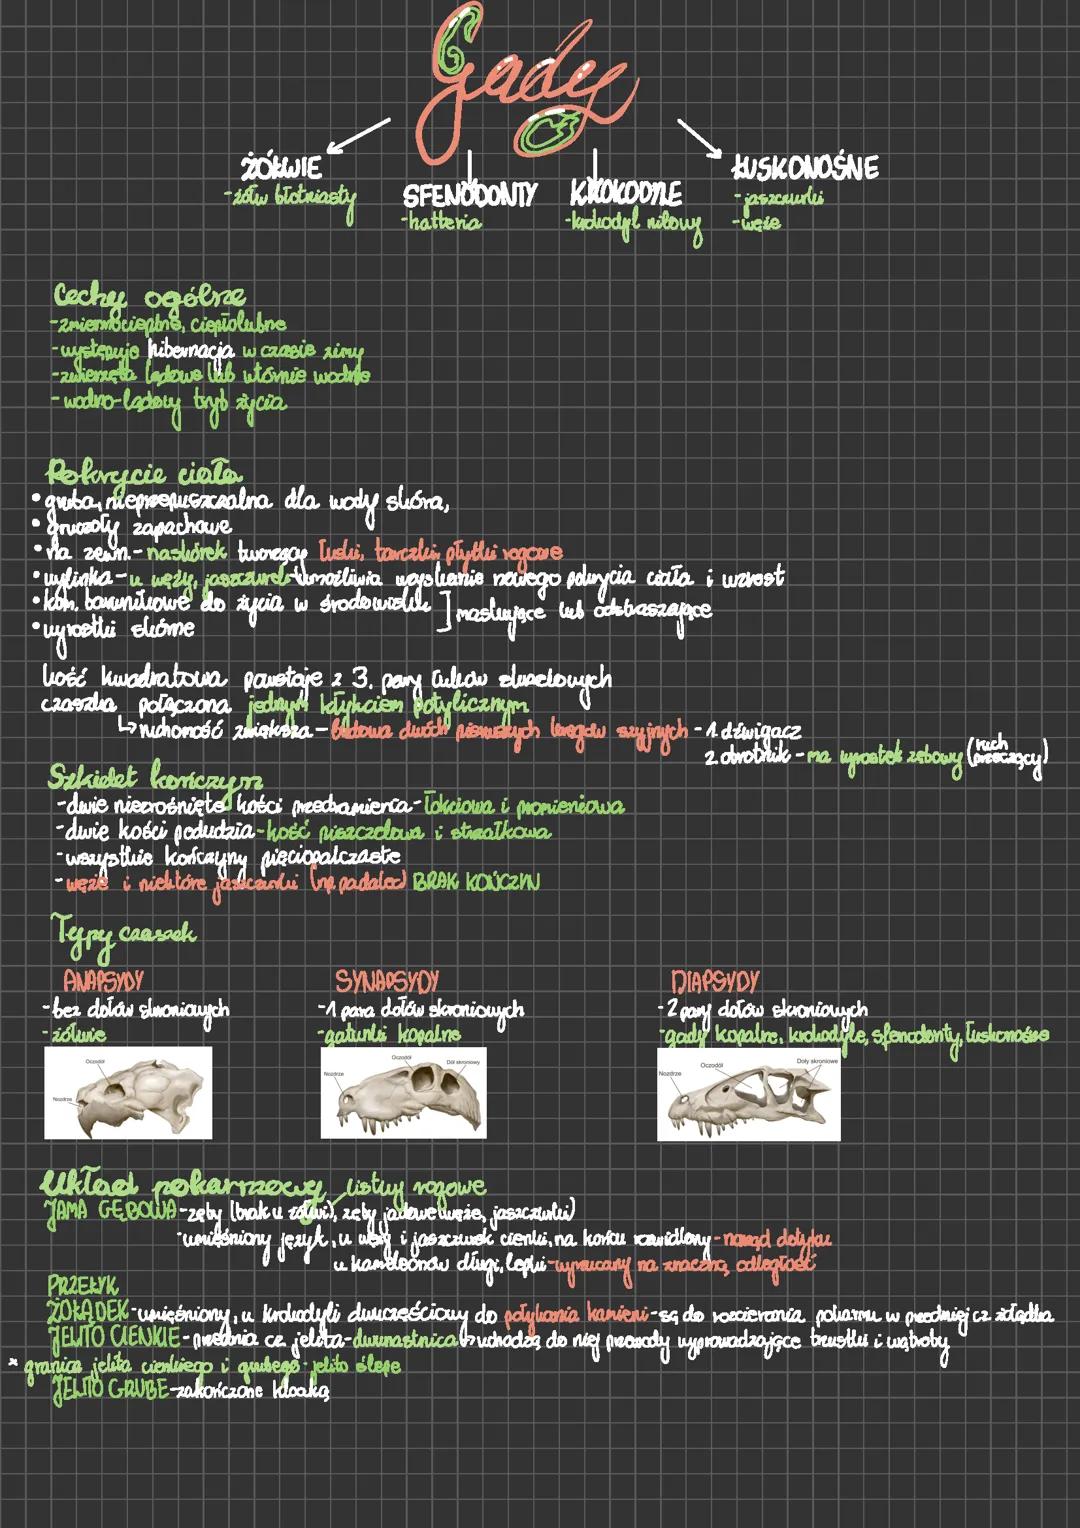 Gady
ŻÓŁWIE
-żółw błotniasty
SFENODONTY
-hatteria
KROKODYLE
-krokodyl nilowy
ŁUSKONOŚNE
-jaszczurki
-węże
Cechy ogólne
-zmiennocieplne, ciepłolubne
-występuje hibernacja w czasie zimy
-zwierzęta lądowe lub wtórnie wodne
-wodno-lądowy tryb życia
Pokrycie ciała
•gruba, nieprzepuszczalna dla wody skóra,
•gruczoły zapachowe
•na zewn.-naskórek tworzący łuski, tarczki, płytki rogowe
•wylinka-u węży, jaszczurek-umożliwia uzyskanie nowego pokrycia ciała i wzrost
•kom. barwnikowe do życia w środowisku ] maskujące lub odstraszające
•wyrostki skórne
kość kwadratowa powstaje z 3. pary łuków skrzelowych
czaszka połączona jednym kłykciem potylicznym
↳ruchomość zwiększa-budowa dwóch pierwszych kręgów szyjnych -1 dźwigacz
2 obrotnik-ma wyrostek zębowy (ruch przeczący)
Szkielet kończyn
-dwie niezrośnięte kości przedramienia-łokciowa i promieniowa
-dwie kości podudzia-kość piszczelowa i strzałkowa
-wszystkie kończyny pięciopalczaste
-węże i niektóre jaszczurki (np padalec) BRAK KOŃCZYN
Typy czaszek
ANAPSYDY
-bez dołów skroniowych
-żółwie
Oczodół
Nozdrza
SYNAPSYDY
-1 para dołów skroniowych
-gatunki kopalne
Oczodół
Dół skroniowy
Nozdrze
DIAPSYDY
-2 pary dołów skroniowych
-gady kopalne, krokodyle, sfenodonty, łuskonośne
Doły skroniowe
Oczodół
Nozdrze
Układ pokarmowy
listwy rogowe
JAMA GĘBOWA-zęby (brak u żółwi), zęby jadowe węże, jaszczurki)
umięśniony język, u węży i jaszczurek cienki, na końcu rozwidlony-narząd dotyku
u kameleonów długi, lepki-wyrzucany na znaczną odległość
PRZEŁYK
ŻOŁĄDEK-umięśniony, u krokodyli dwuczęściowy do połykania kamieni-są do rozcierania pokarmu w przedniej cz żołądka
JELITO CIENKIE-przednia cz jelita-dwunastnica↳uchodzą do niej przewody wyprowadzające trzustki i wątroby
* granica jelita cienkiego i grubego-jelito ślepe
JELITO GRUBE-zakończone kloaką